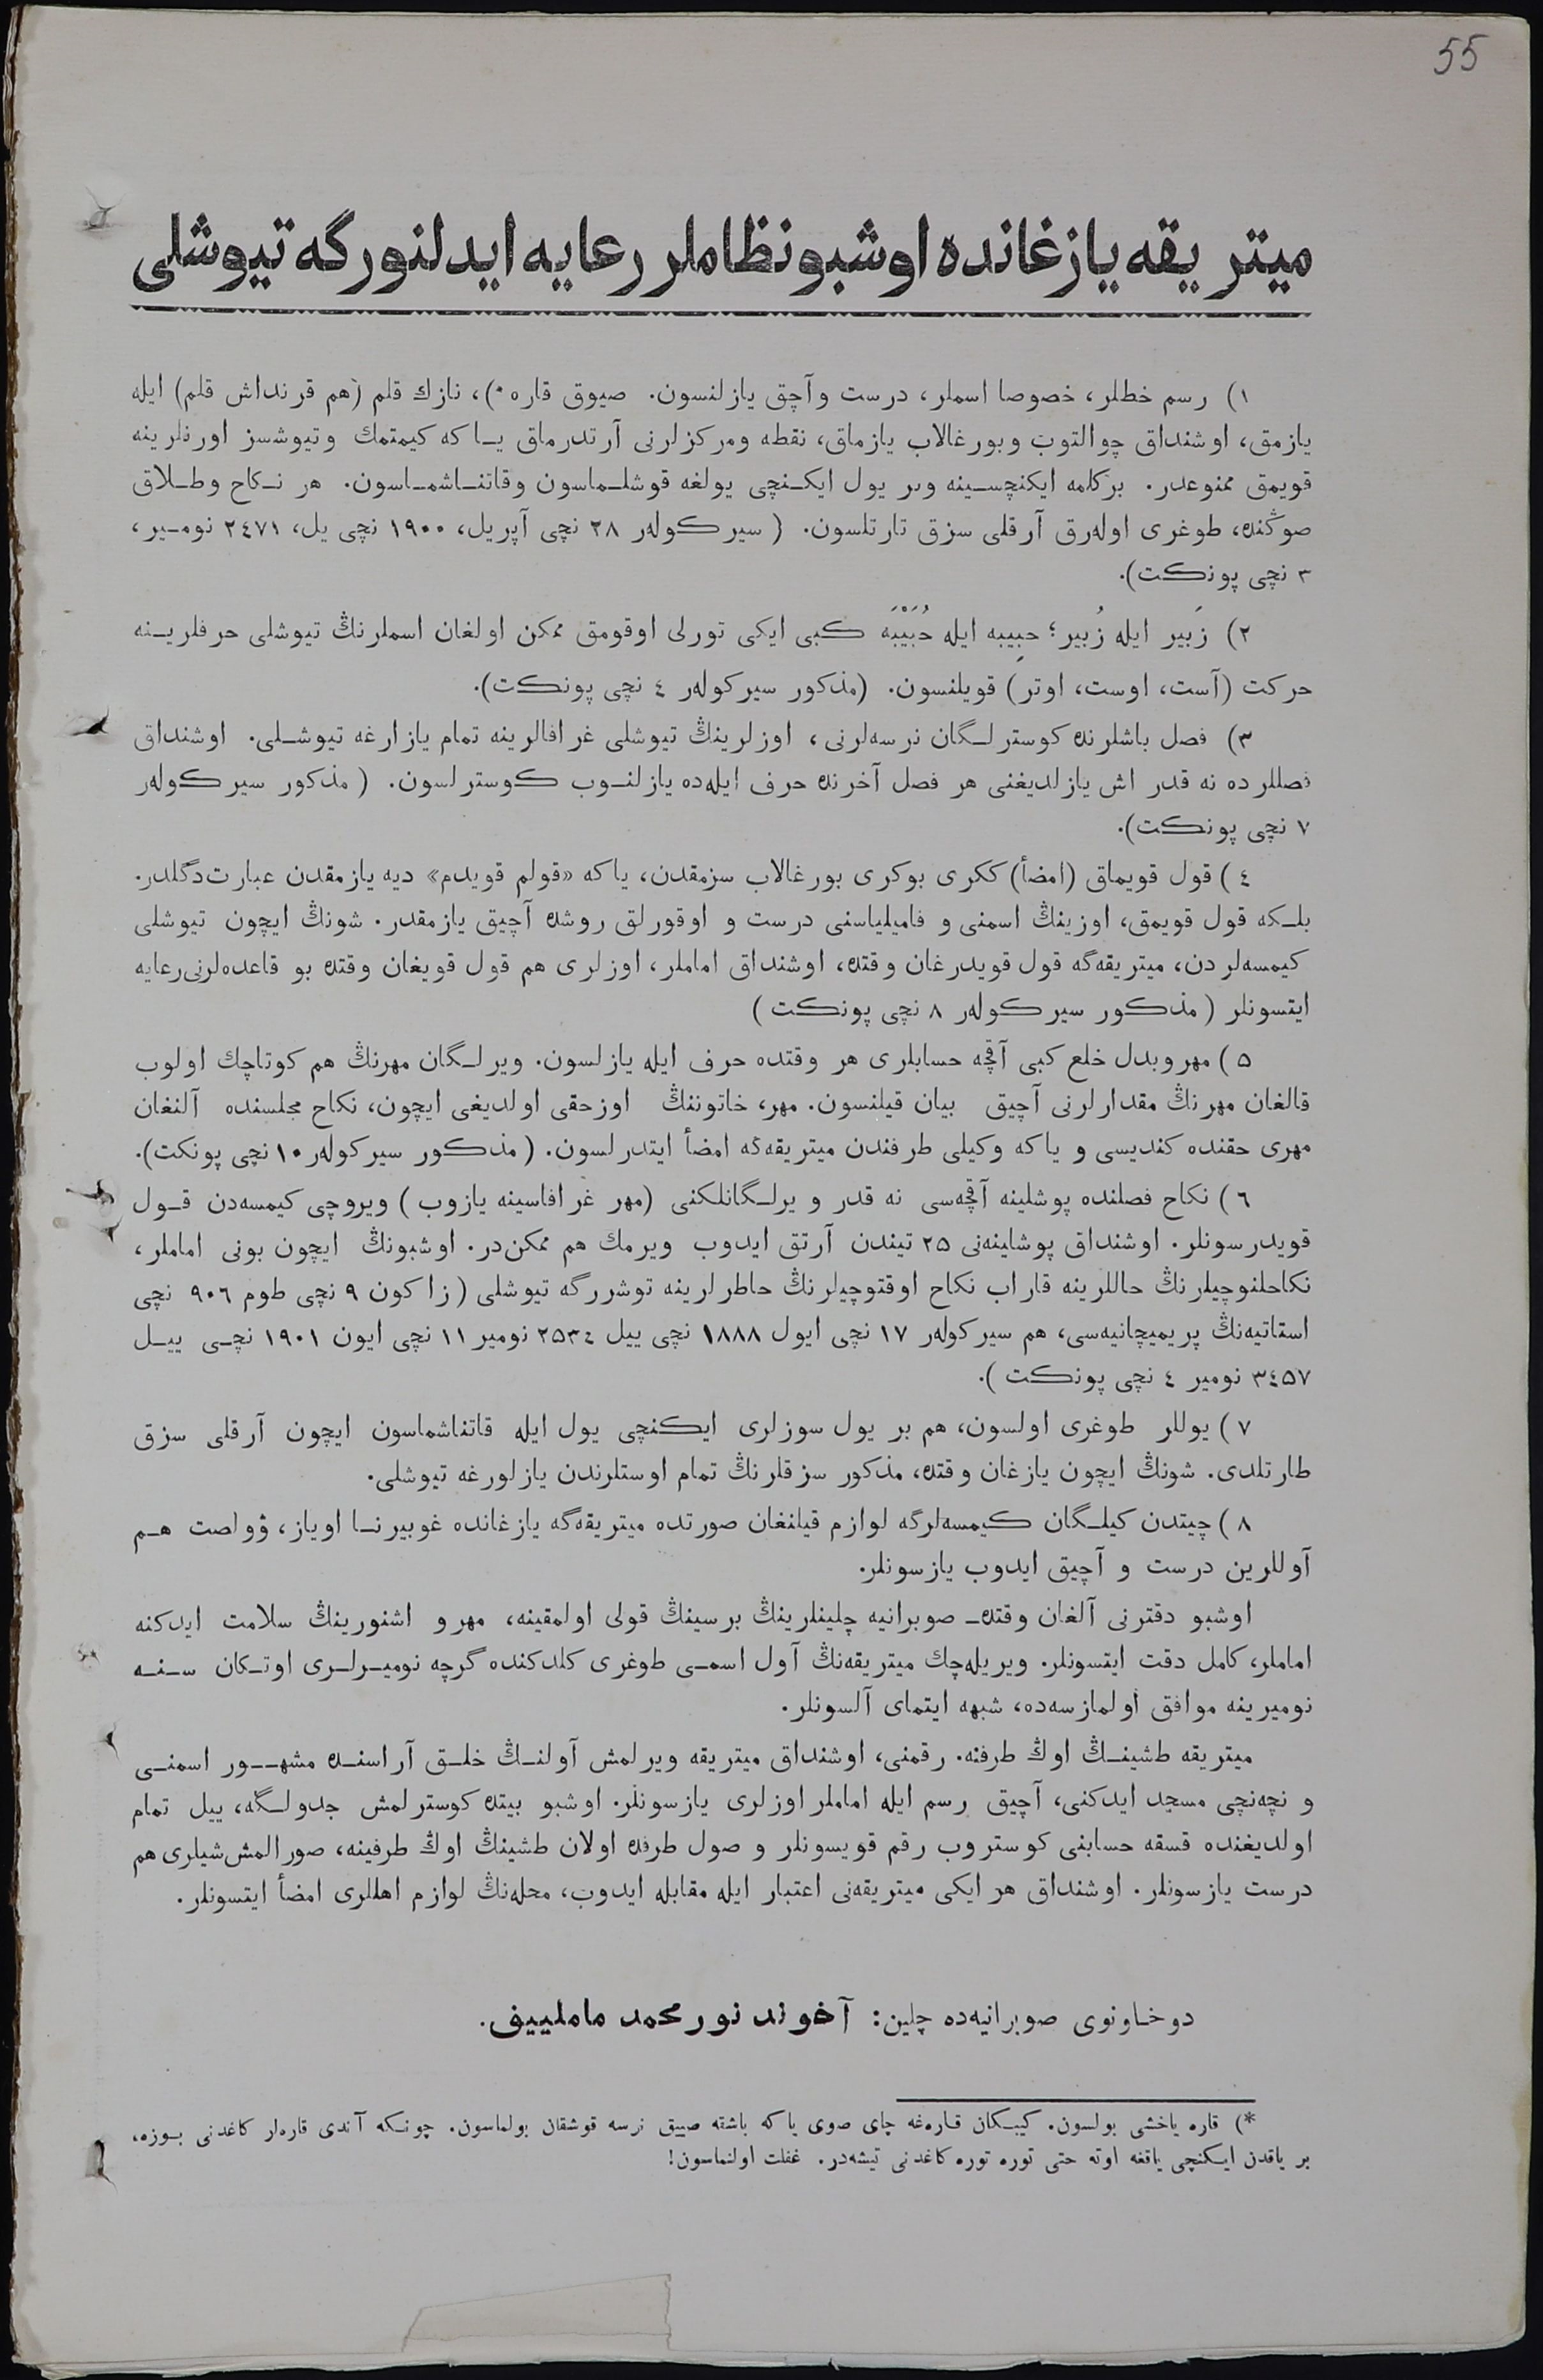 55
ميتريقه يازغانده اوشبو نظاملر رعايه ايدلنورگه تيوشلى
١) رسم خطلر، خصوصا اسملر، درست وآچق يازلنسون. صيوق قاره*)، نازك قلم (هم قرنداش قلم) ايله
يازمق، اوشنداق چوالتوب وبورغالاب يازماق، نقطه ومركزلرنى آرتدرماق يـا كه كيمتمك وتيوشسز اورنلرينه
قويمق ممنوعدر. بركلمه ايكنچسـينه وبر يول ايكـنچى يولغه قوشلـماسون وقاتنـاشمـاسون. هر نـكاح وطـلاق
صوڭنده، طوغرى اوله‌رق آرقلى سزق تارتلسون. (سيركوله‌ر ٢٨ نچى آپريل، ١٩٠٠ نچى يل، ٢٤٧١ نومـير،
٣ نچى پونكت).
٢) زَبير ايله زُبير؛ حبِيبه ايله حُبَيْبَه كبى ايكى تورلى اوقومق ممكن اولغان اسملرنڭ تيوشلى حرفلريـنه
حركت (آست، اوست، اوتر) قويلنسون. (مذكور سيركوله‌ر ٤ نچى پونكت).
٣) فصل باشلرنده كوسترلـگان نرسه‌لرنى، اوزلرينڭ تيوشلى غرافالرينه تمام يازارغه تيوشـلى. اوشنداق
فصللرده نه قدر اش يازلديغنى هر فصل آخرنده حرف ايله‌ده يازلنـوب كوسترلسون. (مذكور سيركوله‌ر
٧ نچى پونكت).
٤) قول قويماق (امضأ) ككرى بوكرى بورغالاب سزمقدن، ياكه «قولم قويدم» ديه يازمقدن عبارت دگلدر.
بلـكه قول قويمق، اوزينڭ اسمنى و فاميلياسنى درست و اوقورلق روشده آچيق يازمقدر. شونڭ ايچون تيوشلى
كيمسه‌لردن، ميتريقه‌گه قول قويدرغان وقتده، اوشنداق اماملر، اوزلرى هم قول قويغان وقتده بو قاعده‌لرنى رعايه
ايتسونلر (مذكور سيركوله‌ر ٨ نچى پونكت)
٥) مهر وبدل خلع كبى آقچه حسابلرى هر وقتده حرف ايله يازلسون. ويرلـگان مهرنڭ هم كوتاچك اولوب
قالغان مهرنڭ مقدارلرنى آچيق بيان قيلنسون. مهر، خاتوننڭ اوزحقى اولديغى ايچون، نكاح مجلسنده آلنغان
مهرى حقنده كنديسى و ياكه وكيلى طرفندن ميتريقه‌گه امضأ ايتدرلسون. (مذكور سيركوله‌ر ١٠ نچى پونكت).
٦) نكاح فصلنده پوشلينه آقچه‌سى نه قدر ويرلـگانلكنى (مهر غرافاسينه يازوب) ويروچى كيمسه‌دن قـول
قويدرسونلر. اوشنداق پوشلينه‌نى ٢٥ تيندن آرتق ايدوب ويرمك هم ممكن‌در. اوشبونڭ ايچون بونى اماملر،
نكاحلنوچيلرنڭ حاللرينه قاراب نكاح اوقتوچيلرنڭ خاطرلرينه توشررگه تيوشلى (زاكون ٩ نچى طوم ٩٠٦ نچى
استاتيه‌نڭ پريميچانيه‌سى، هم سيركوله‌ر ١٧ نچى ايول ١٨٨٨ نچى ييل ٢٥٣٤ نومير ١١ نچى ايون ١٩٠١ نچـى ييـل
٣٤٥٧ نومير ٤ نچى پونكت).
٧) يوللر طوغرى اولسون، هم بر يول سوزلرى ايكنچى يول ايله قاتناشماسون ايچون آرقلى سزق
طارتلدى. شونڭ ايچون يازغان وقتده، مذكور سزقلرنڭ تمام اوستلرندن يازلورغه تيوشلى.
٨) چيتدن كيلـگان كيمسه‌لرگه لوازم قيلنغان صورتده ميتريقه‌گه يازغانده غوبيرنـا اوياز، ۋولصت هـم
آوللرين درست و آچيق ايدوب يازسونلر.
اوشبو دفترنى آلغان وقتده صوبرانيه چلينلرينڭ برسينڭ قولى اولمقينه، مهر و اشنورينڭ سلامت ايدكنه
اماملر، كامل دقت ايتسونلر. ويريله‌چك ميتريقه‌نڭ آول اسمـى طوغرى كلدكنده گرچه نوميـرلـرى اوتـكان سـنـه
نوميرينه موافق اولمازسه‌ده، شبهه ايتماى آلسونلر.
ميتريقه طشينـڭ اوڭ طرفنه. رقمنى، اوشنداق ميتريقه ويرلمش آولنـڭ خلـق آراسنـده مشهـور اسمنـى
و نچه‌نچى مسجد ايدكنى، آچيق رسم ايله اماملر اوزلرى يازسونلر. اوشبو بيتده كوسترلمش جدولـگه، ييل تمام
اولديغنده قسقه حسابنى كوستروب رقم قويسونلر و صول طرفده اولان طشينڭ اوڭ طرفينه، صورالمش شيلرى هم
درست يازسونلر. اوشنداق هر ايكى ميتريقه‌نى اعتبار ايله مقابله ايدوب، محله‌نڭ لوازم اهللرى امضأ ايتسونلر.
دوخـاونوى صوبرانيه‌ده چلين: آخوند نورمحمد ماملييف.
*) قاره ياخشى بولسون. كيبـكان قـاره‌غه چاى صوى ياكه باشقه صييق نرسه قوشقان بولماسون. چونـكه آندى قاره‌لر كاغدنى بـوزه،
بر ياقدن ايـكنچى ياققه اوته حتى توره توره كاغدنى تيشه‌در. غفلت اولنماسون!